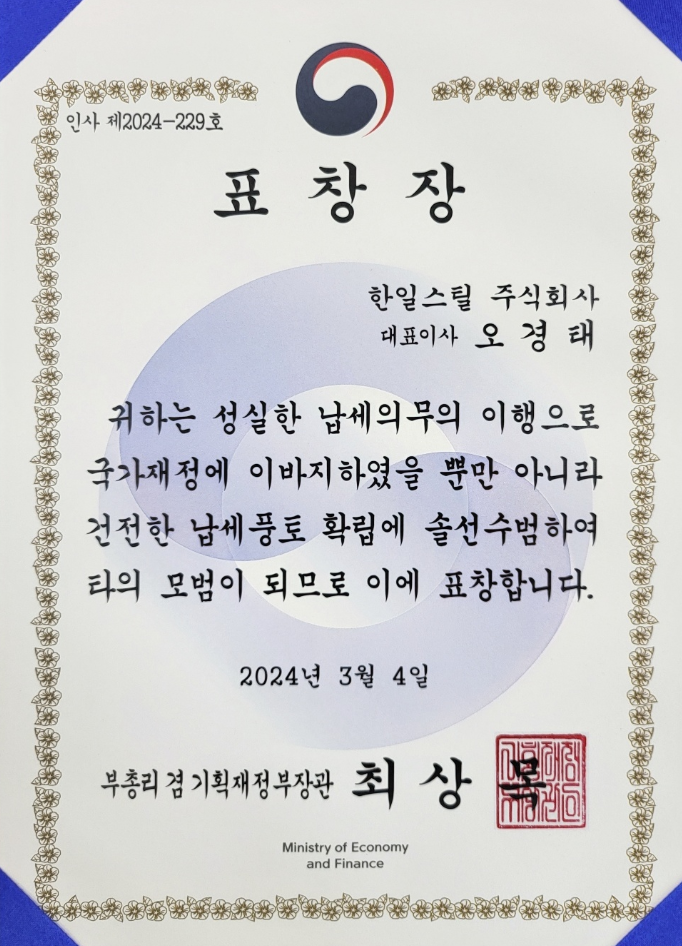 인사 제2024-229호
표 창 장
한일스틸 주식회사
대표이사 오 경 태
귀하는 성실한 납세의무의 이행으로
국가재정에 이바지하였을 뿐만 아니라
건전한 납세풍토 확립에 솔선수범하여
타의 모범이 되므로 이에 표창합니다.
2024년 3월 4일
부총리 겸 기획재정부장관 최 상 목
Ministry of Economy
and Finance